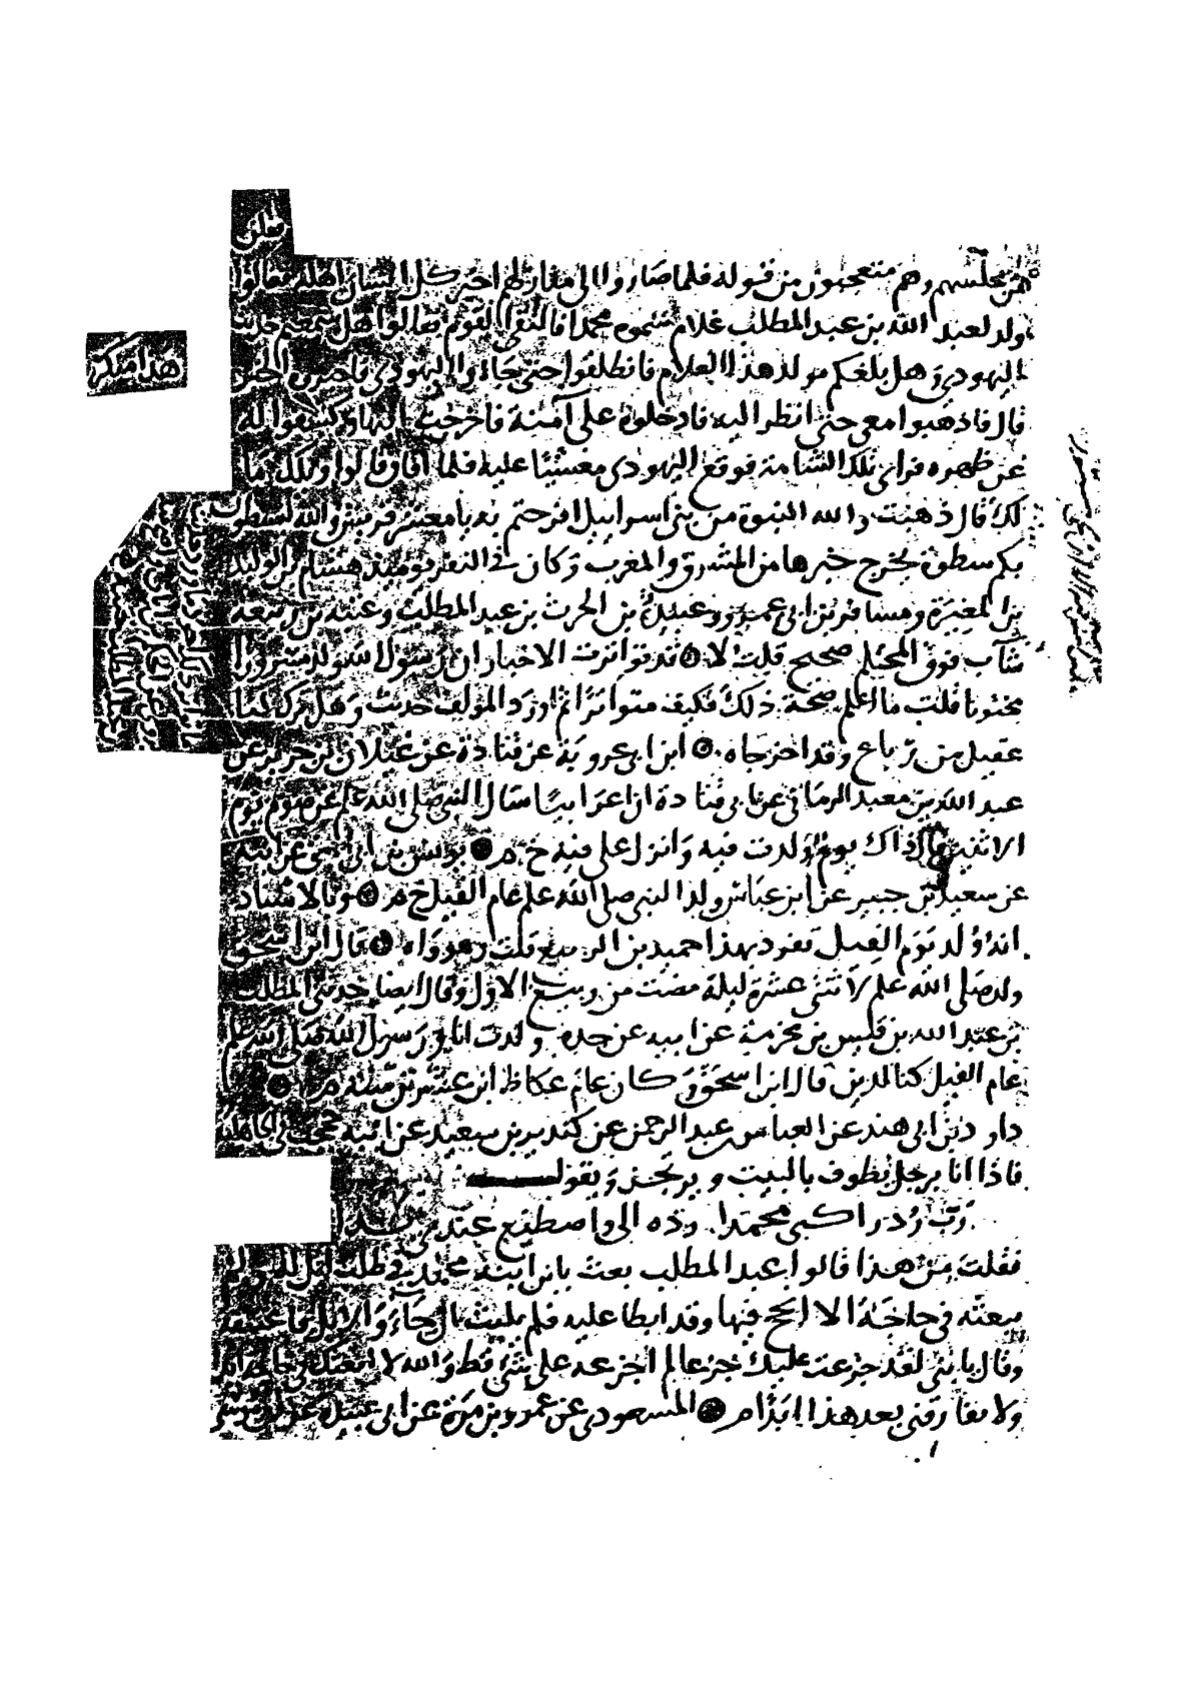 من مجلسهم وهم متعجبون من قوله فلما صاروا الى منازلهم اخبر كل انسان اهله فقالوا
ولد لعبد الله بن عبد المطلب غلام سموه محمدا فالتقى القوم فقالوا هل سمعتم حديث
اليهودي وهل بلغكم مولد هذا الغلام فانطلقوا حتى جاءوا اليهودي فاخبروه الخبر
قال فاذهبوا معي حتى انظر اليه فادخلوه على آمنة فاخرجت اليهم وكشفوا له
عن ظهره فراى تلك الشامة فوقع اليهودي مغشيا عليه فلما افاق قالوا ويلك ما
لك قال ذهبت والله النبوة من بني اسراييل افرحتم به يا معشر قريش والله ليسطون
بكم سطوة يخرج خبرها من المشرق والمغرب وكان في النفر يومئذ هشام بن الوليد
بن المغيرة ومسافر بن ابي عمرو وعبيدة بن الحرث بن عبد المطلب وعتبة بن ربيعة
شاب فوق المحتلم صحيح قلت لا قد تواترت الاخبار ان رسول الله ولد مسرورا
مختونا قلت ما اعلم صحة ذلك فكيف متواترا ثم اورد المؤلف حديث وهل ترك لنا
عقيل من رباع وقد اخرجاه ابن ابي عروبة عن قتادة عن غيلان بن جرير عن
عبد الله بن معبد الرماني عن ابي قتادة ان اعرابيا سال النبي صلى الله علم عن صوم يوم
الاثنين قال ذاك يوم ولدت فيه وانزل علي فيه خ م يونس بن ابي اسحق عن ابيه
عن سعيد بن جبير عن ابن عباس ولد النبي صلى الله علم عام الفيل خ م وبالاسناد
انه ولد يوم الفيل تفرد بهذا حميد بن الربيع قلت وهو واه قال ابن اسحق
ولد صلى الله علم لاثنتي عشرة ليلة مضت من ربيع الاول وقال ايضا حدثني المطلب
بن عبد الله بن قيس بن مخرمة عن ابيه عن جده ولدت انا ورسول الله صلى الله علم
عام الفيل كنا لدين قال ابن اسحق وكان عام عكاظ ابن عشرين سنة م
داود بن ابي هند عن العباس بن عبد الرحمن عن كندير بن سعيد عن ابيه حججت في الجاهلية
فاذا انا برجل يطوف بالبيت ويرتجز ويقول
رب رد راكبي محمدا رده الي واصطنع عندي يدا
فقلت من هذا قالوا عبد المطلب بعث بابن ابنه محمد في طلب ابل له ولم
يبعثه في حاجة الا انجح فيها وقد ابطا عليه فلم يلبث ان جاء والابل فاعتنقه
وقال يا بني لقد جزعت عليك جزعا لم اجزعه على شيء قط والله لا ابعثك في حاجة ابدا
ولا تفارقني بعد هذا ابدا م المسعودي عن عمرو بن مرة عن ابي عبيدة عن ابي موسى
هذا منكر